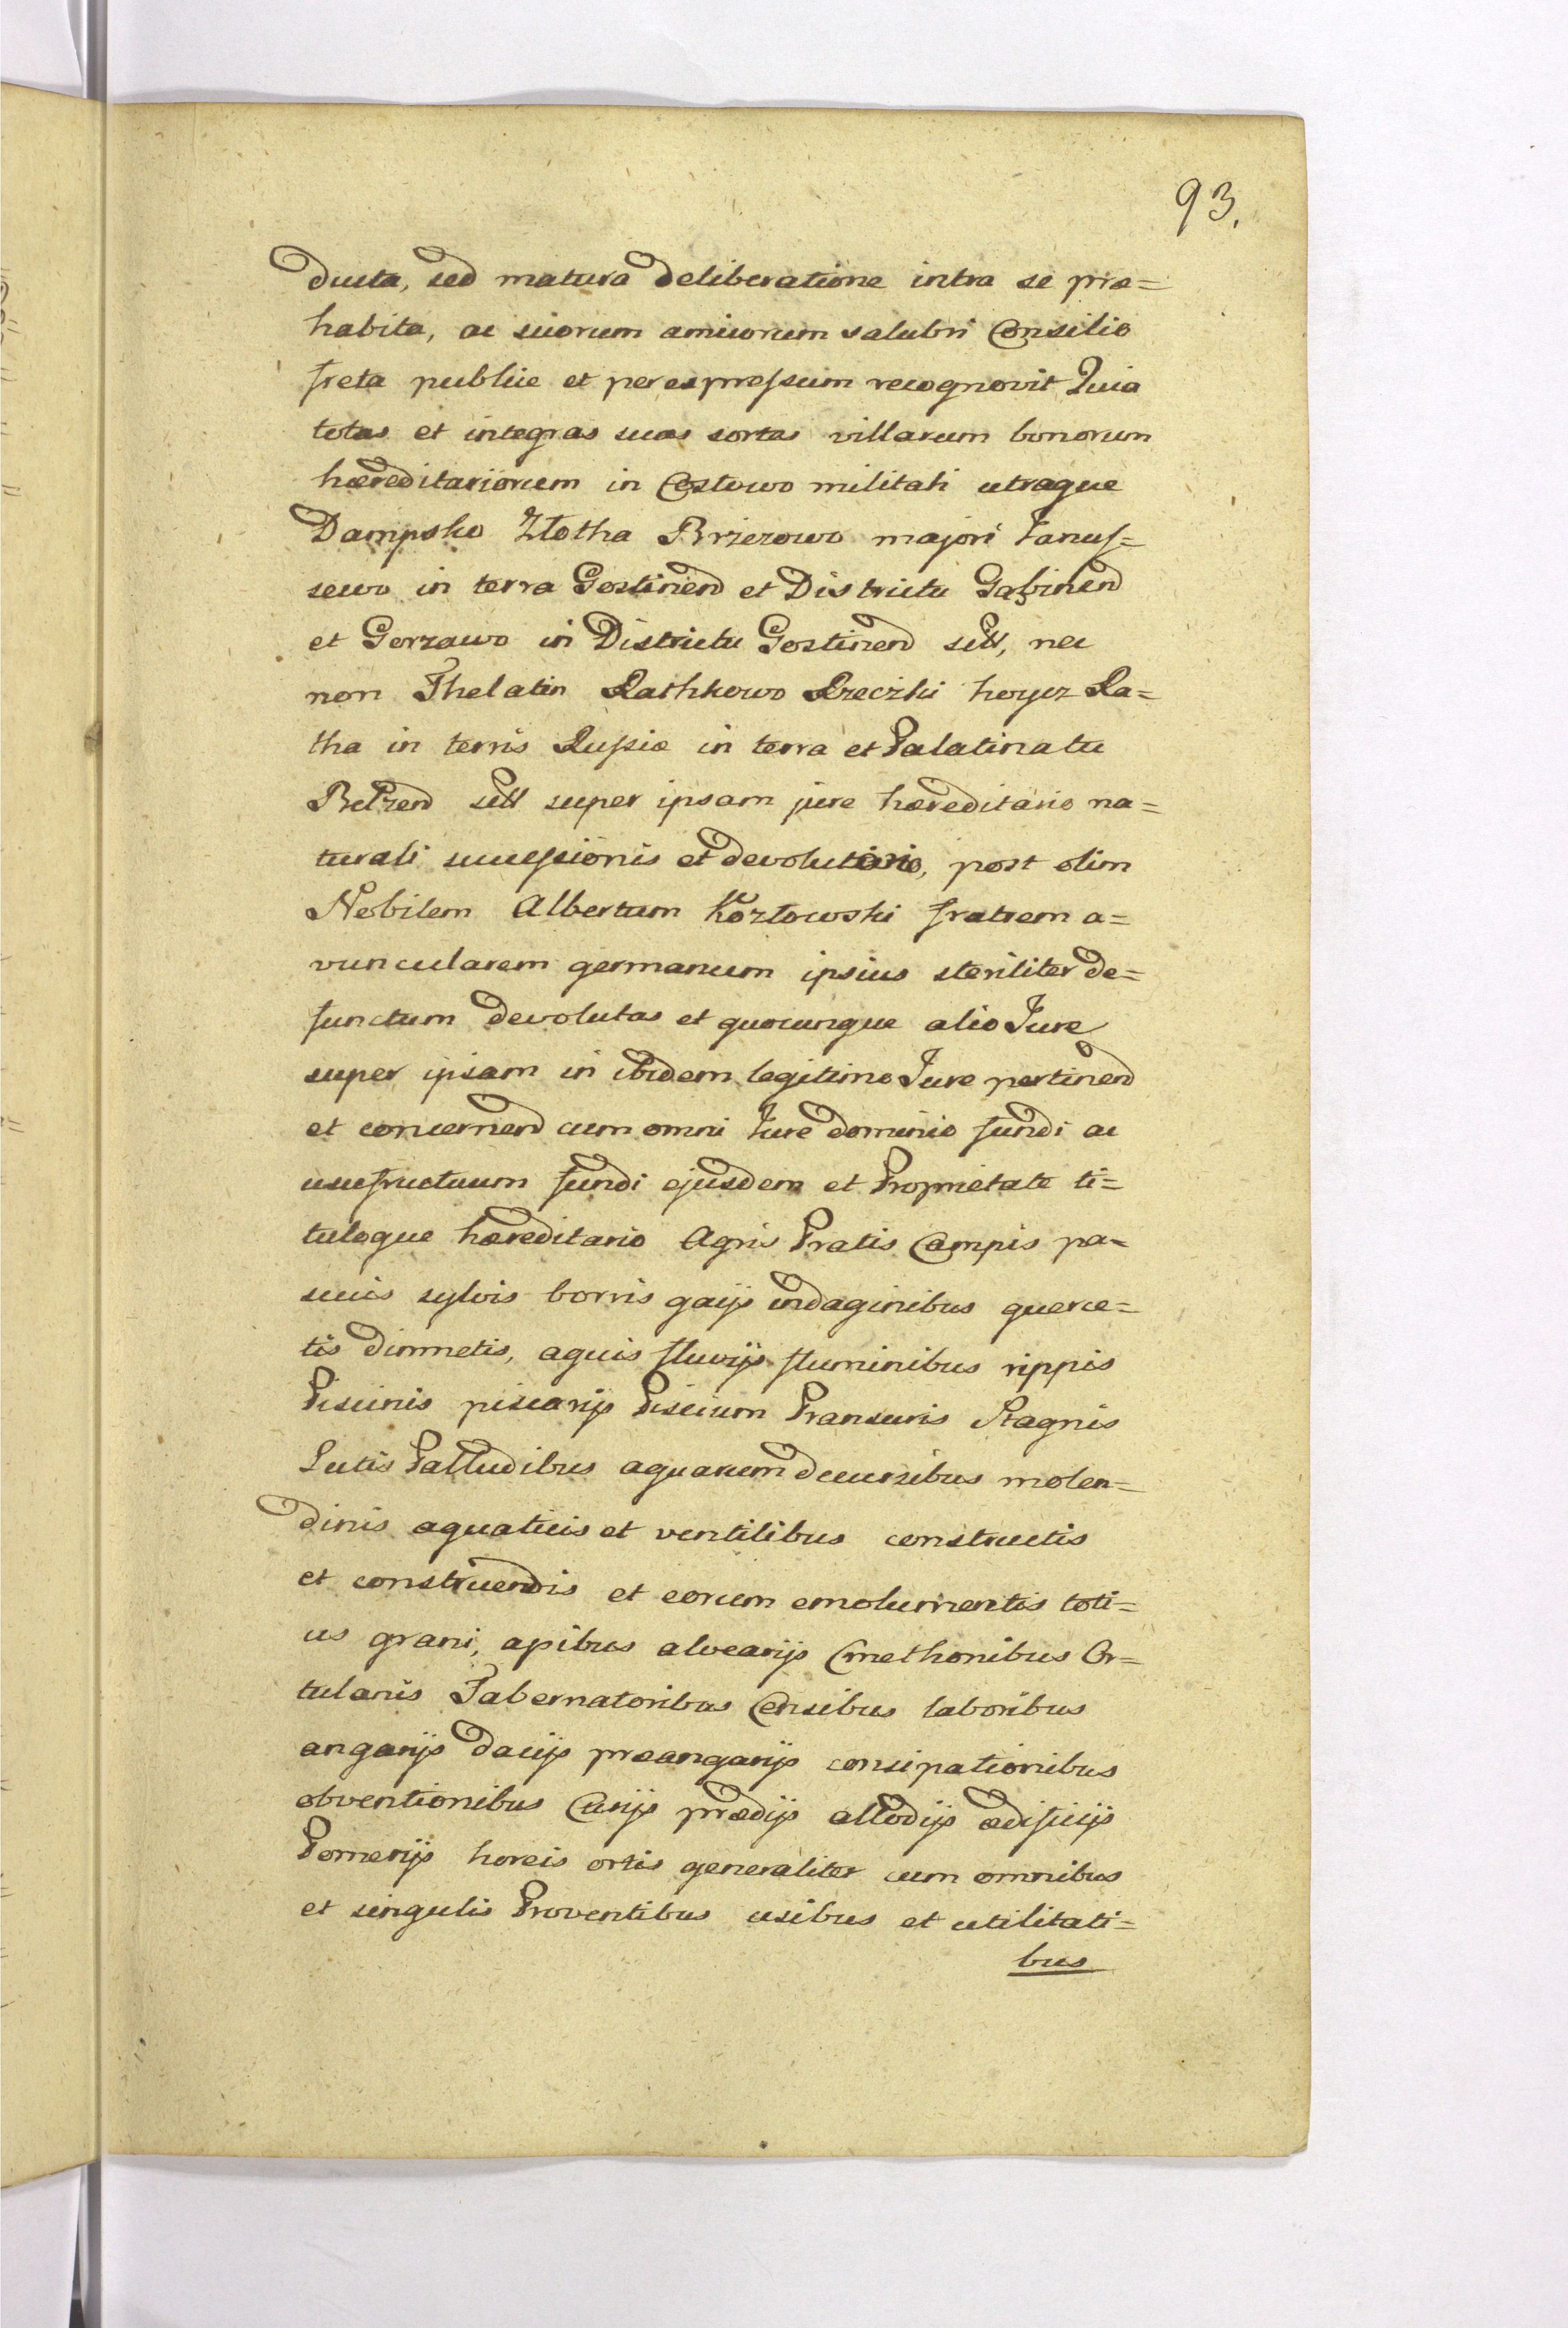 93.
ducta, sed matura deliberatione intra se præ=
habita, ac suorum amicorum salubri Consilio
freta publice et per expressum recognovit Quia
totas et integras suas sortas villarum bonorum
hæreditariorum in Czstowo militali utraque
Dampsko Złotha Brzezowo majori Janus=
sewo in terra Gostinend et Districtu Gąbinend
et Gorzewo in Districtu Gostinend sitt, nec
non Thelatin Rathkowo Rzeczki hoycz Ra=
tha in terris Russiæ in terra et Palatinatu
Belzend sitt super ipsam jure hæreditario na=
turali successionis et devolutorio, post olim
Nobilem Albertum Kozłowski fratrem a=
vuncularem germanum ipsius steriliter de=
functum devolutas et quocunque alio Jure
super ipsam in ibidem legitimo Jure pertinend
et concernend cum omni Jure dominio fundi ac
usufructuum fundi ejusdem et Proprietate ti=
tuloque hæreditario Agris Pratis Campis pa=
scuis sylvis borris gaijs indaginibus querce=
tis dirmetis, aquis fluvijs fluminibus rippis
Piscinis piscarijs Piscium Pransuris Stagnis
Lutis Palludibus aquarum decursibus molen=
dinis aquaticis et ventilibus constructis
et construendis et eorum emolumentis toti=
us grani, apibus alvearijs Cmethonibus Or=
tulanis Tabernatoribus Censibus laboribus
angarijs dacijs præangarijs consipationibus
obventionibus Curijs prædijs allodijs ædificijs
Pomerijs horeis ortis generaliter cum omnibus
et singulis Proventibus usibus et utilitati=
bus